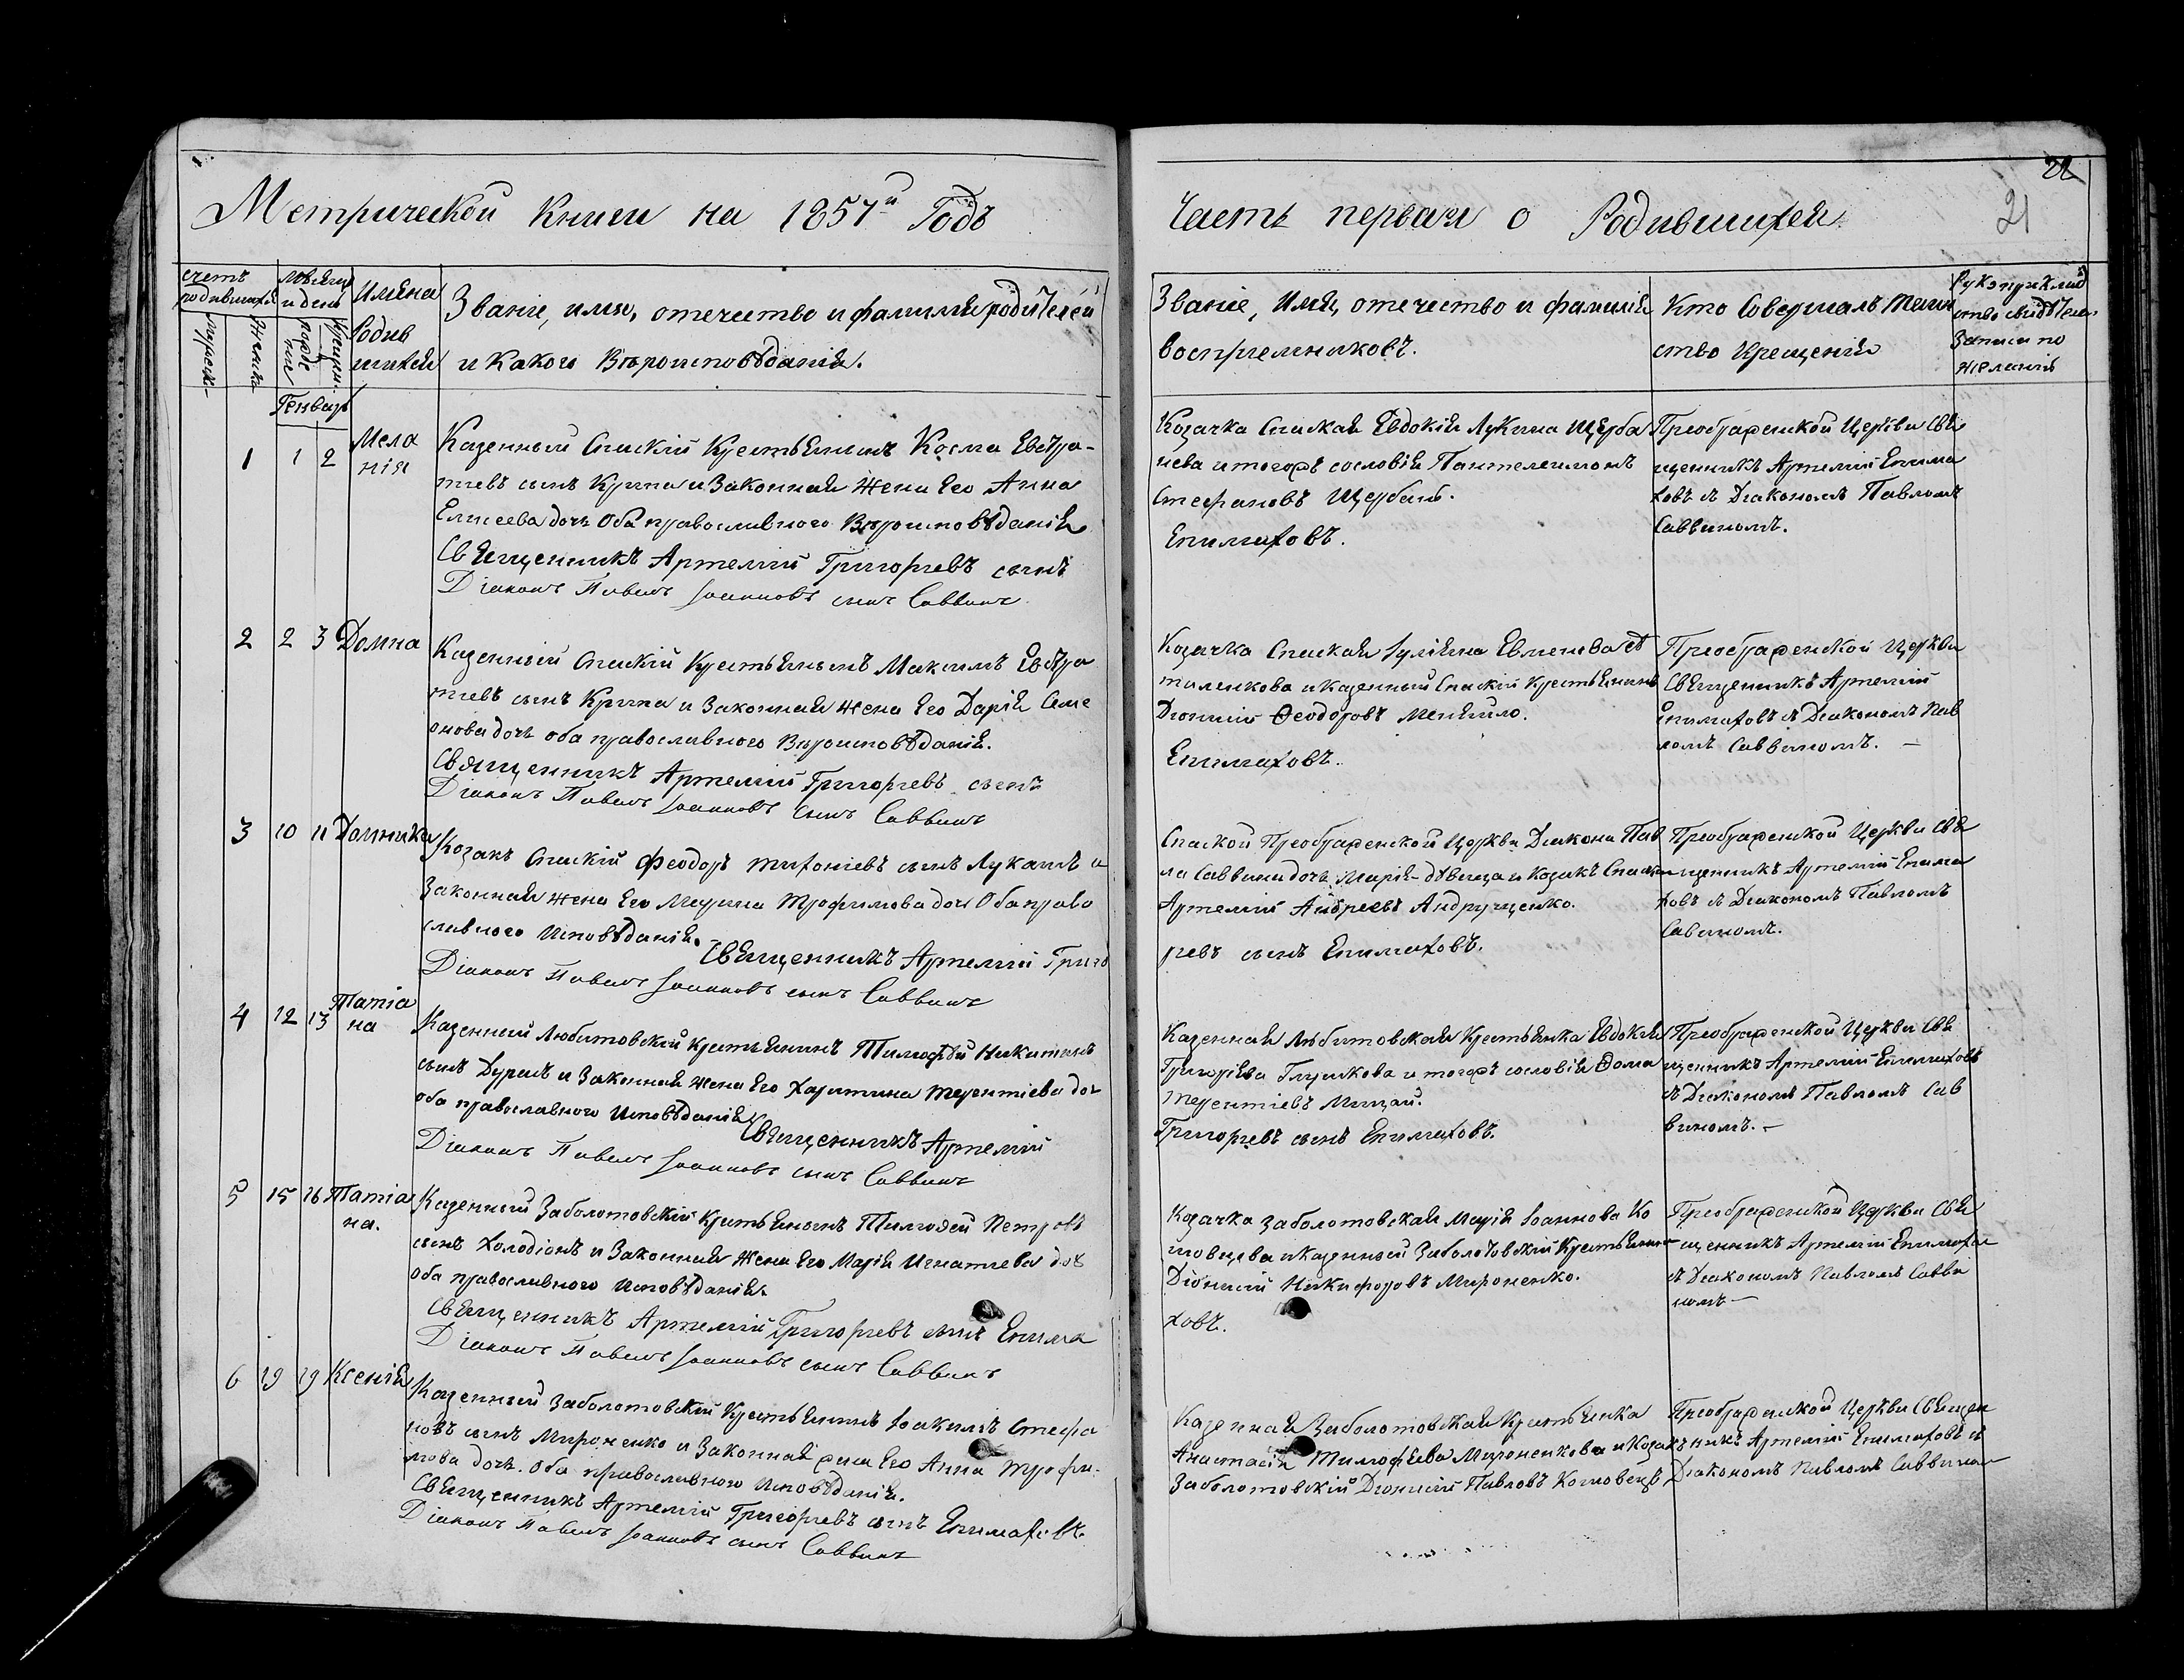 22
21
Метрической Книги на 1857й Годъ
Часть первая о Родившихся
счетъ
родившихся
Мужеск.
Женска
Мѣсяцъ
и день
рожденіе
Крещен.
Имена
Родив
шихся
Званіе, имя, отечество и фамилія родителей
и Какого Вѣроисповѣданія.
Званіе, Имя, отечество и фамилія
воспріемниковъ.
Кто Совершалъ таин
ство Крещенія
Рукоприклад
ство свидѣтелей
Записи по
желанію
Генварь
1 1 2 Мела
нія
Казенный Спаскій Крестьянинъ Косма Евстра-
тіевъ сынъ Крипа и Законная Жена Его Анна
Елисеева дочь Оба православного Вѣроисповѣданія
Священникъ Артемій Григоріевъ сынъ
Діаконъ Павелъ Іоанновъ сынъ Саввинъ
Козачка Спаская Евдокія Лукина Щерба
нева и тогожъ сословія Пантелеимонъ
Стефановъ Щербань.
Епимаховъ.
Преображенской Церкви Свя
щенникъ Артемій Епима
ховъ съ Діакономъ Павломъ
Саввиномъ.
2 2 3 Домна
Казенный Спаскій Крестьянинъ Максимъ Евстра
тіевъ сынъ Крипа и Законная жена Его Дарія Семе
онова дочь оба православного Вѣроисповѣданія.
Священникъ Артемій Григоріевъ сынъ
Діаконъ Павелъ Іоанновъ сынъ Саввинъ
Козачка Спаская Іуліяна Евменова
и Казенный Спаскій Крестьянинъ
Діонисій Ѳеодоровъ
Епимаховъ.
Преображенской Церкви
Священникъ Артемій
Епимаховъ съ Діакономъ Пав
ломъ Саввиномъ. —
3 10 11 Домника
Козакъ Спаскій Феодоръ сынъ Лукашъ и
Законная жена Его Марина Трофимова дочь Оба право
славного Исповѣданія.
Священникъ Артемій Григо
Діаконъ Павелъ Іоанновъ сынъ Саввинъ
Спаской Преображенской Церкви Діакона Пав
ла Саввина дочь Марія дѣвица и Козакъ Спаскій
Артемій Андреевъ Андрущенко.
ріевъ сынъ Епимаховъ.
Преображенской Церкви Свя
щенникъ Артемій Епима
ховъ съ Діакономъ Павломъ
Савиномъ.
4 12 13 Татіа
на
Казенный Любитовскій Крестьянинъ Тимофѣй Никитинъ
сынъ Дурянъ и Законная жена Его Харитина Терентіева доч
оба православного Исповѣданія
Священникъ Артемій
Діаконъ Павелъ Іоанновъ сынъ Саввинъ
Казенная Любитовская Крестьянка Евдокія
Григоріева Глушкова и тогожъ сословія Ѳома
Терентіевъ Мицай.
Григоріевъ сынъ Епимаховъ.
Преображенской Церкви Свя
щенникъ Артемій Епимаховъ
съ Діакономъ Павломъ Сав
виномъ. —
5 15 16 Татіа
на.
Казенный Заболотовскій Крестьянинъ Тимофей Петровъ
сынъ Холодіонъ и Законная Жена Его Марія Игнатіева доч
оба православного Исповѣданія
Священникъ Артемій Григоріевъ сынъ Епима
Діаконъ Павелъ Іоанновъ сынъ Саввинъ
Козачка Заболотовская Марія Іоаннова Ко
и Казенный Заболотовскій Крестьянинъ
Діонисій Никифоровъ Мироненко.
ховъ.
Преображенской Церкви Свя
щенникъ Артемій Епимахо
съ Діакономъ Павломъ Савви
номъ —
6 19 19 Ксенія
Казенный Заболотовскій Крестьянинъ Іоакимъ Стефа
новъ сынъ Мироненко и Законная жена Его Анна Трофи-
мова дочь. Оба православного Исповѣданія.
Священникъ Артемій Григоріевъ сынъ Епимаховъ.
Діаконъ Павелъ Іоанновъ сынъ Саввинъ
Казенная Заболотовская Крестьянка
Анастасія Тимофѣева Мироненкова и Козакъ
Заболотовскій Діонисій Павловъ
Преображенской Церкви Священ
никъ Артемій Епимаховъ съ
Діакономъ Павломъ Саввином